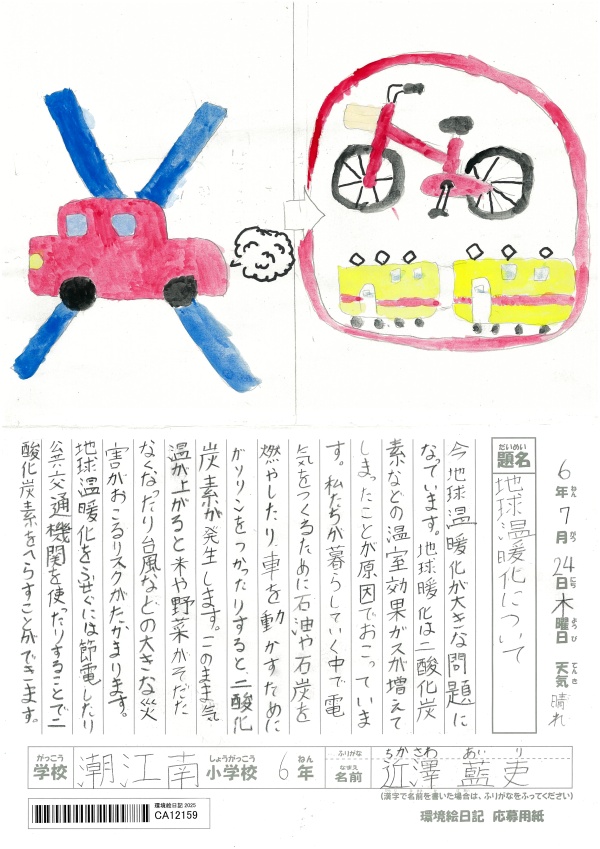 6年7月24日木曜日 天気晴れ
ねん がつ にち ようび てんき
だいめい
題名
地球温暖化について
今地球温暖化が大きな問題に
なっています。地球暖化は二酸化炭
素などの温室効果ガスが増えて
しまったことが原因でおこっていま
す。私たちが暮らしていく中で電
気をつくるために石油や石炭を
燃やしたり、車を動かすために
ガソリンをつかったりすると、二酸化
炭素が発生します。このまま気
温が上がると米や野菜がそだた
なくなったり台風などの大きな災
害がおこるリスクがたかまります。
地球温暖化をふせぐには節電したり
公共交通機関を使ったりすることで二
酸化炭素をへらすことができます。
がっこう しょうがっこう ねん ふりがな ちかざわ あいり
学校 潮江南 小学校 6年 なまえ 名前 近澤 藍吏
(漢字で名前を書いた場合は、ふりがなをふってください)
環境絵日記 2025
CA12159
環境絵日記 応募用紙